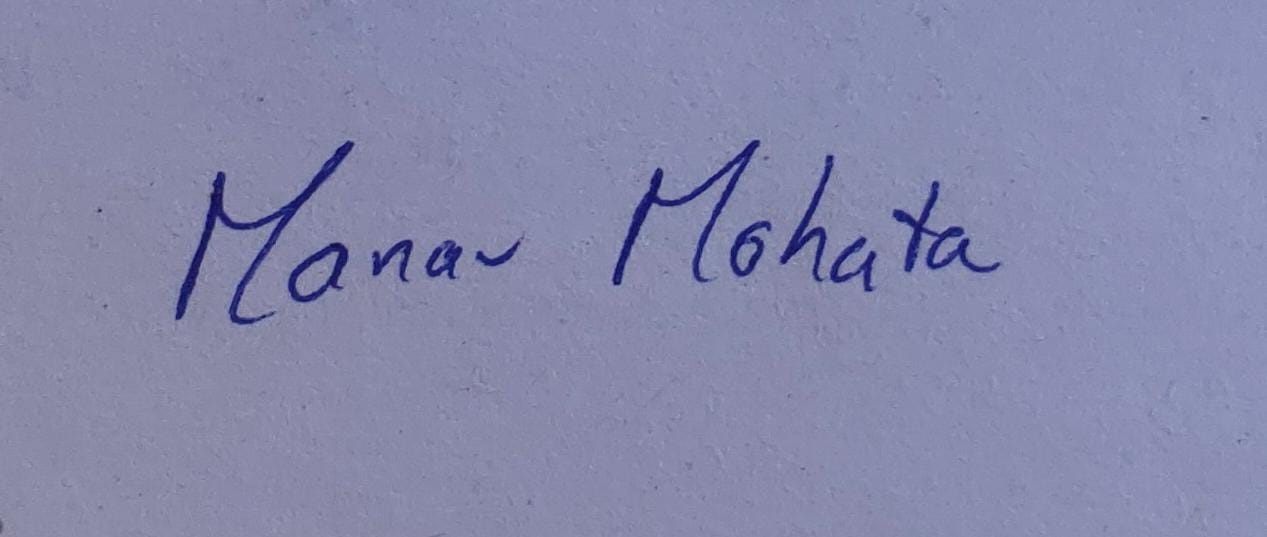 Manav Mohata